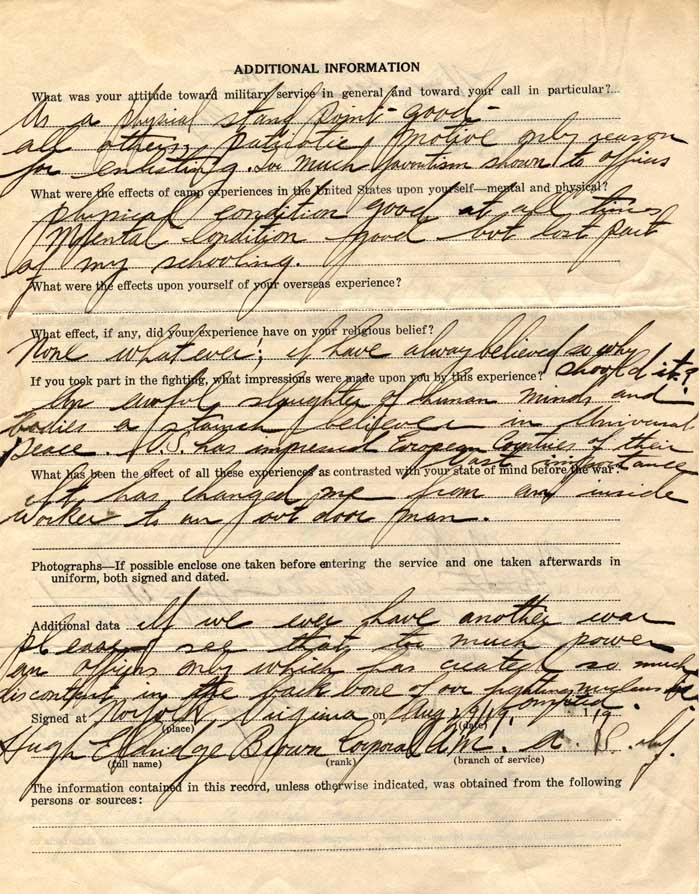 ADDITIONAL INFORMATION
What was your attitude toward military service in general and toward your call in particular?
As a physical stand point - good -
all others, patriotic motive only reason
for enlisting. Too much favoritism shown to officers
What were the effects of camp experiences in the United States upon yourself—mental and physical?
Physical condition good at all times
Mental condition good but lost part
of my schooling.
What were the effects upon yourself of your overseas experience?
What effect, if any, did your experience have on your religious belief?
None whatever; I have always believed so why
should it?
If you took part in the fighting, what impressions were made upon you by this experience?
awful slaughter of human minds and
bodies a staunch believer in Universal
peace. U.S. has impressed European Countries of their
importance
What has been the effect of all these experiences as contrasted with your state of mind before the war?
It has changed me from an inside
worker to an out door man.
Photographs—If possible enclose one taken before entering the service and one taken afterwards in
uniform, both signed and dated.
Additional data If we ever have another war
please see that too much power
on officers only which has created so much
discontent in the back bone of our fighting
Signed at Norfolk, Virginia on Aug 29/19. 191 9
(place) (date)
Hugh Eldridge Brown Corporal
(full name) (rank) (branch of service)
The information contained in this record, unless otherwise indicated, was obtained from the following
persons or sources: